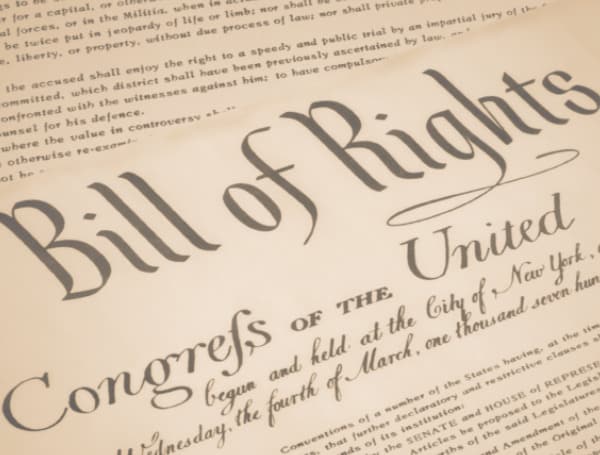 for a capital, or
forces, or in the Militia, when in
be twice put in jeopardy of life or limb; nor shall be
, liberty, or property, without due process of law; nor shall private
the accused shall enjoy the right to a speedy and public trial by an impartial jury of the
ommitted, which district shall have been previously ascertained by law,
onfronted with the witnesses against him; to have compulsor
unsel for his defence.
where the value in controversy
otherwise re-exami
ot be
Bill of Rights
Congreſs OF THE United
begun and held at the City of New York,
Wednesday, the fourth of March, one thousand seven hun
Conventions of a number of the States having, at the tim
that further declaratory and restrictive clauses
nds of its institution:
the SENATE and HOUSE of REPRESE
Articles be proposed to the Legisl
of the said Legislatures
and Amendment of the
of the